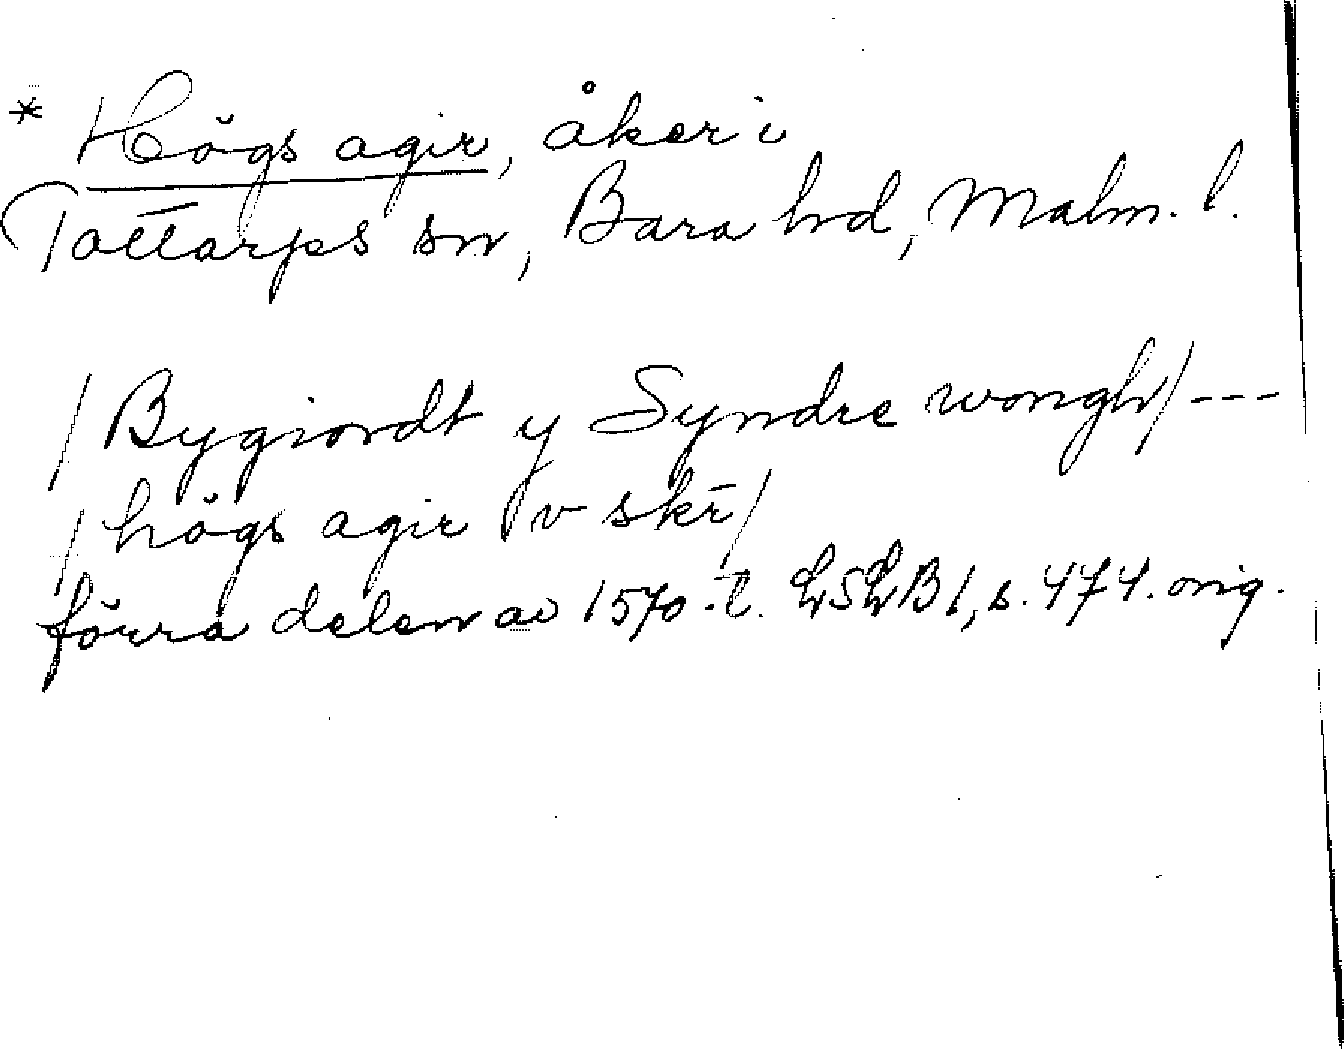 * Högs agir, åker i
Tottarps sn, Bara hd, Malm. l.
/Bygiordt y Syndre wongh/ ---
/högs agir v skr̄/
förra delen av 1570-t. LSLB 1, s. 474. orig.